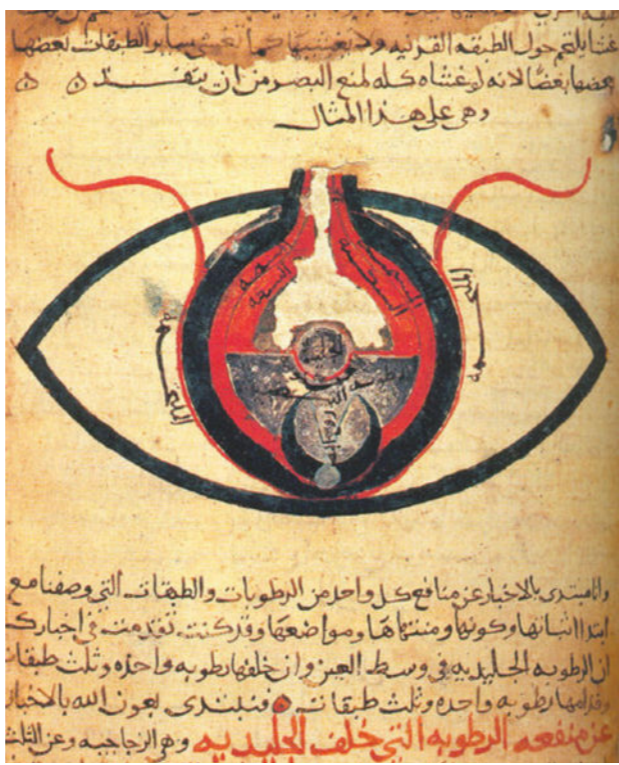 غشا يلتحم حول الطبقه القرنيه ولا يغشيها كما يغشى ساير الطبقات بعضها
بعضها بعضا لانه لو غشاه كله لمنع البصر من ان ينفذ
وهى على هذا المثال
الملتحمه
الملتحمه
الجليديه
الرطوبه البيضيه
وانا مبتدى بالاخبار عن منافع كل واحد من الرطوبات والطبقات التي وصفنا مع
ابتدا اثباتها وكونها ومنتهاها ومواضعها وقد كنت تقدمت فى اخبارك
ان الرطوبه الجليديه فى وسط العين وان خلفها رطوبه واحده وثلث طبقات
وقدامها رطوبه واحده وثلث طبقات فنبتدى بعون الله بالاخبار
عن منفعه الرطوبه التى خلف الجليديه وهى الزجاجيه وعن الثلث